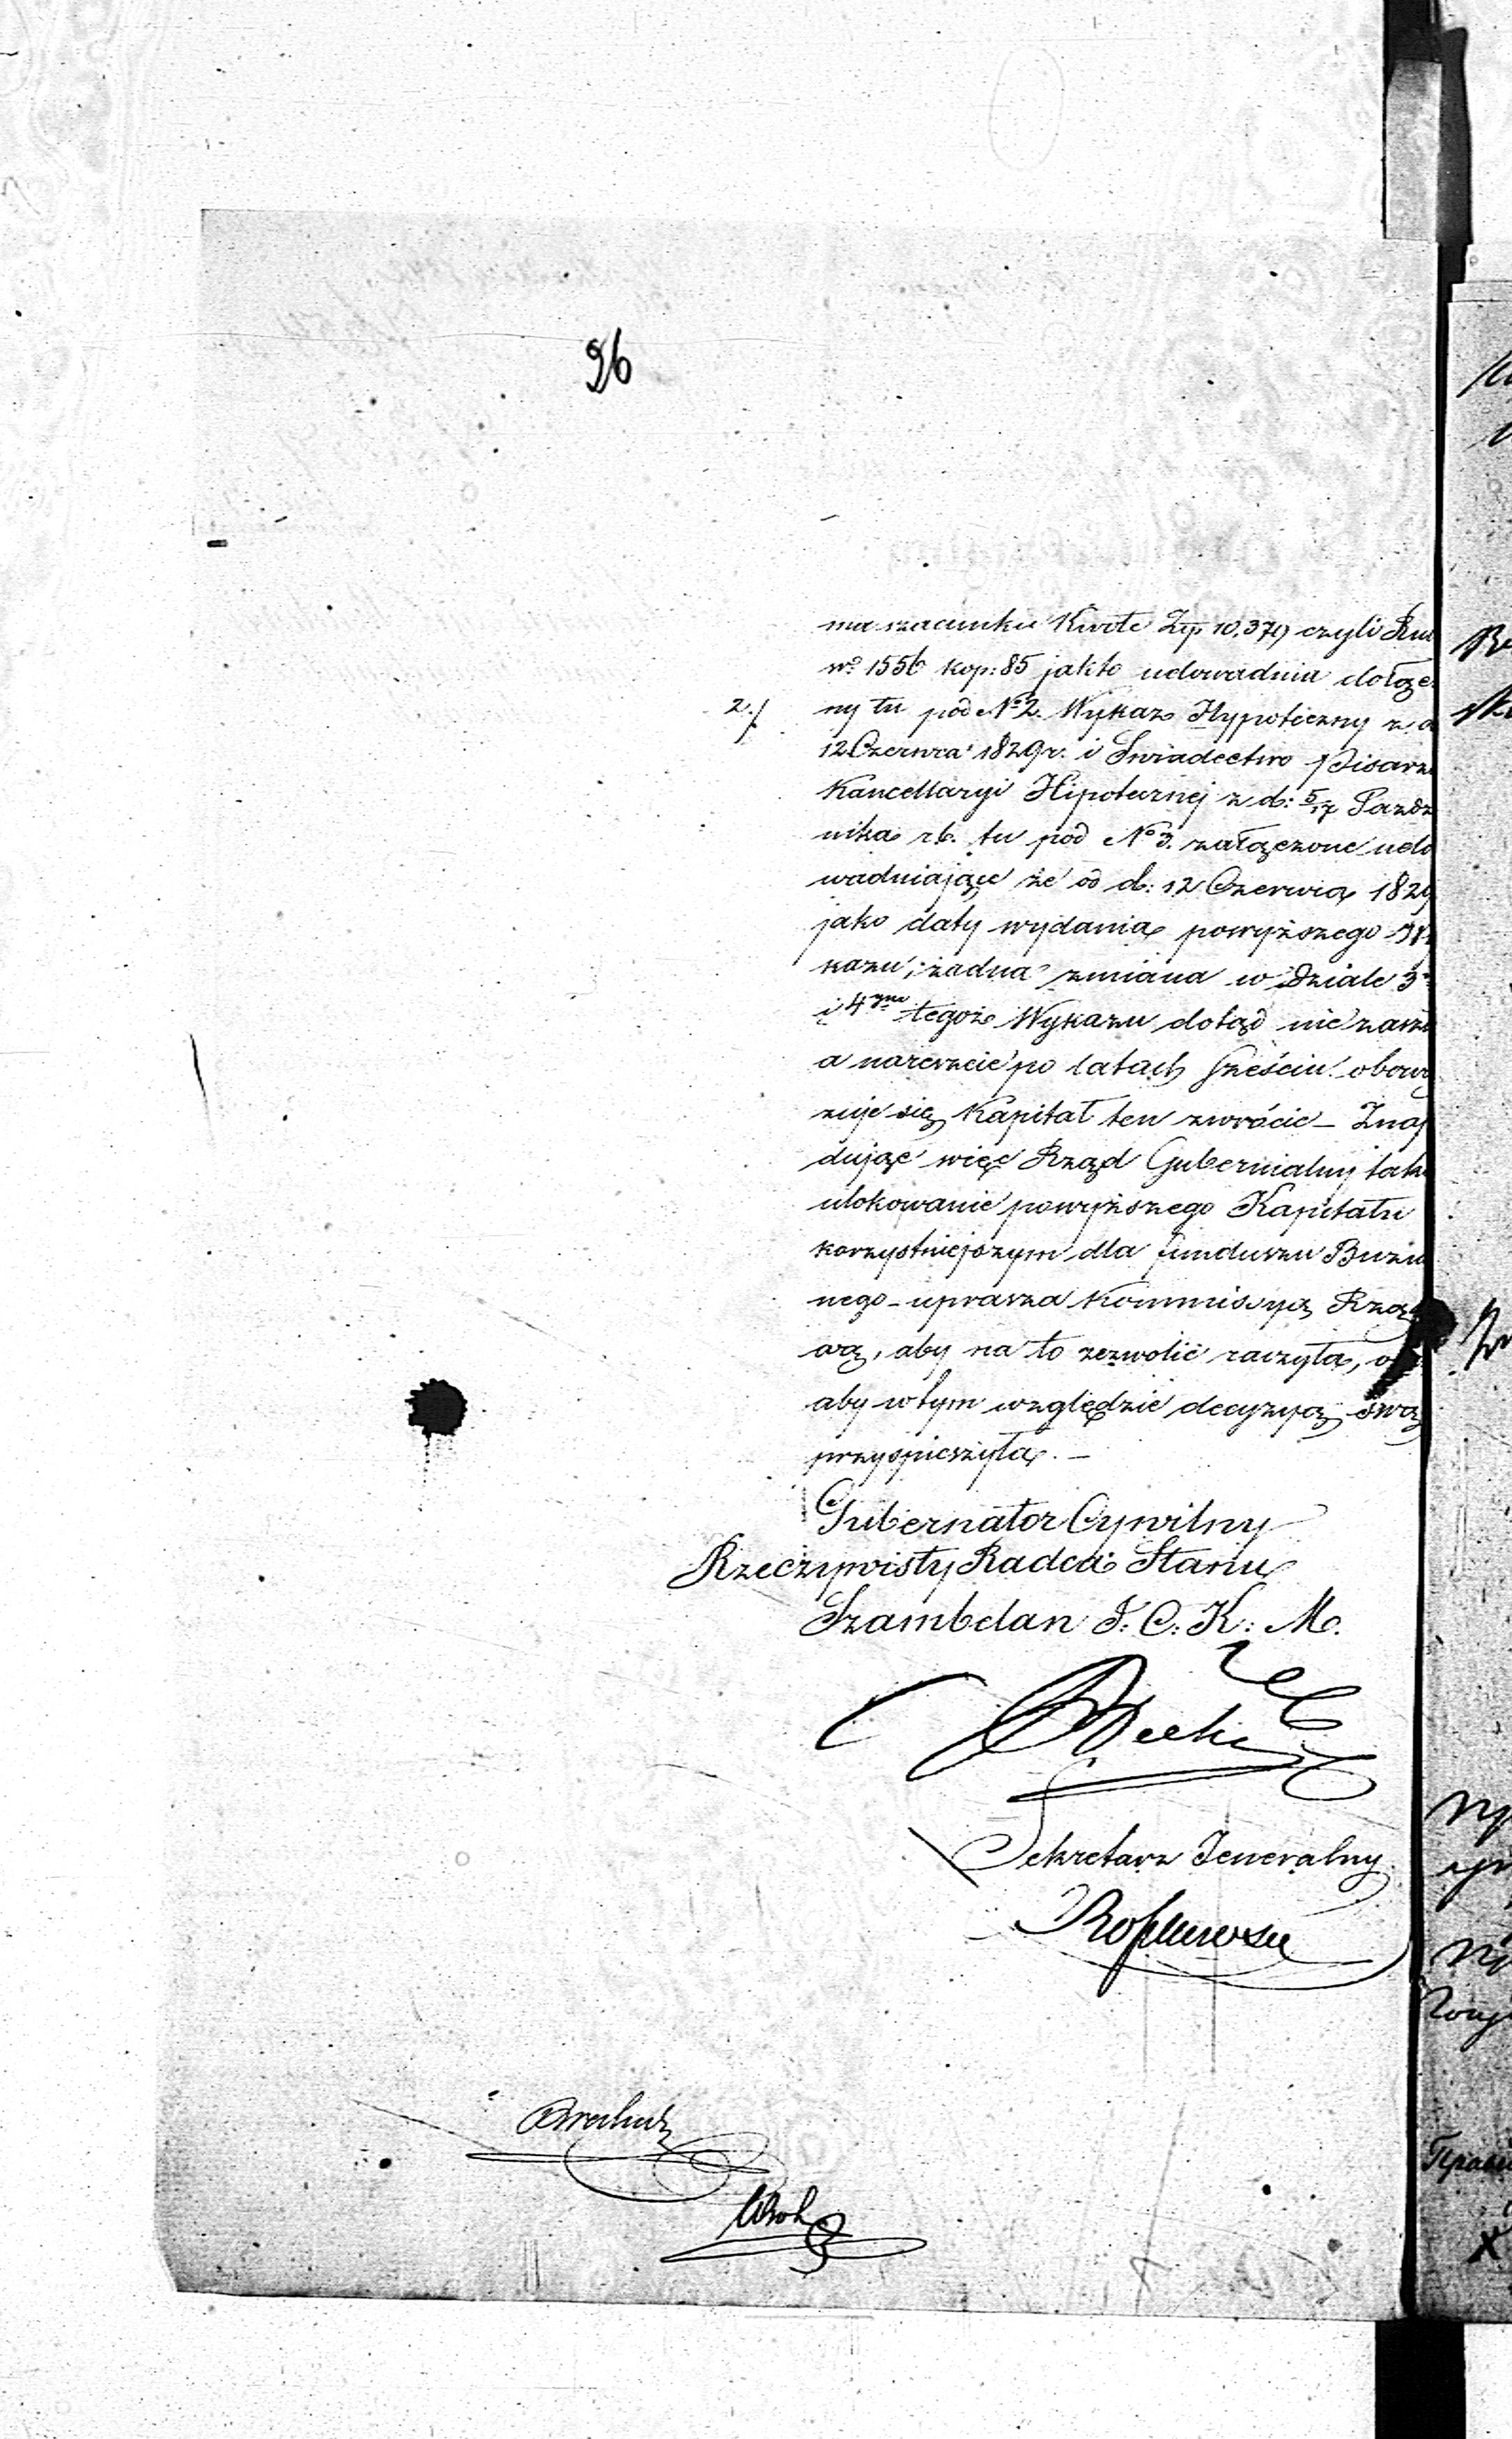 96
ma szacunku Kwotę Złp. 10,379 czyli Rub
nº 1556 kop: 85 jak to udowadnia dołącze
2./ ny tu pod Nº 2. Wykaz Hypoteczny z d
12 Czerwca 1829 r. i Swiadectwo Pisarz
Kancellaryi Hipotecznej z d: 5/17 Pazdz
nika r.b. tu pod Nº 3. załączone udo
wadniające że od d: 12 Czerwca 1829
jako daty wydania powyższego Wy
kazu, żadna zmiana w Dziale 3
i 4 tegoż Wykazu dotąd nie zasz
a nareszcie po latach sześciu obow
zuje się Kapitał ten zwrócić – Znaj
dując więc Rząd Gubernialny tak
ulokowanie powyższego Kapitału
korzystniejszym dla funduszu
nego – uprasza Kommissyą Rzą
ową, aby na to zezwolić raczyła,
aby w tym względzie decyzyą swą
przyspieszyła. –
Gubernator Cywilny
Rzeczywisty Radca Stanu
Szambelan J. C. K. M.
Sekretarz Jeneralny